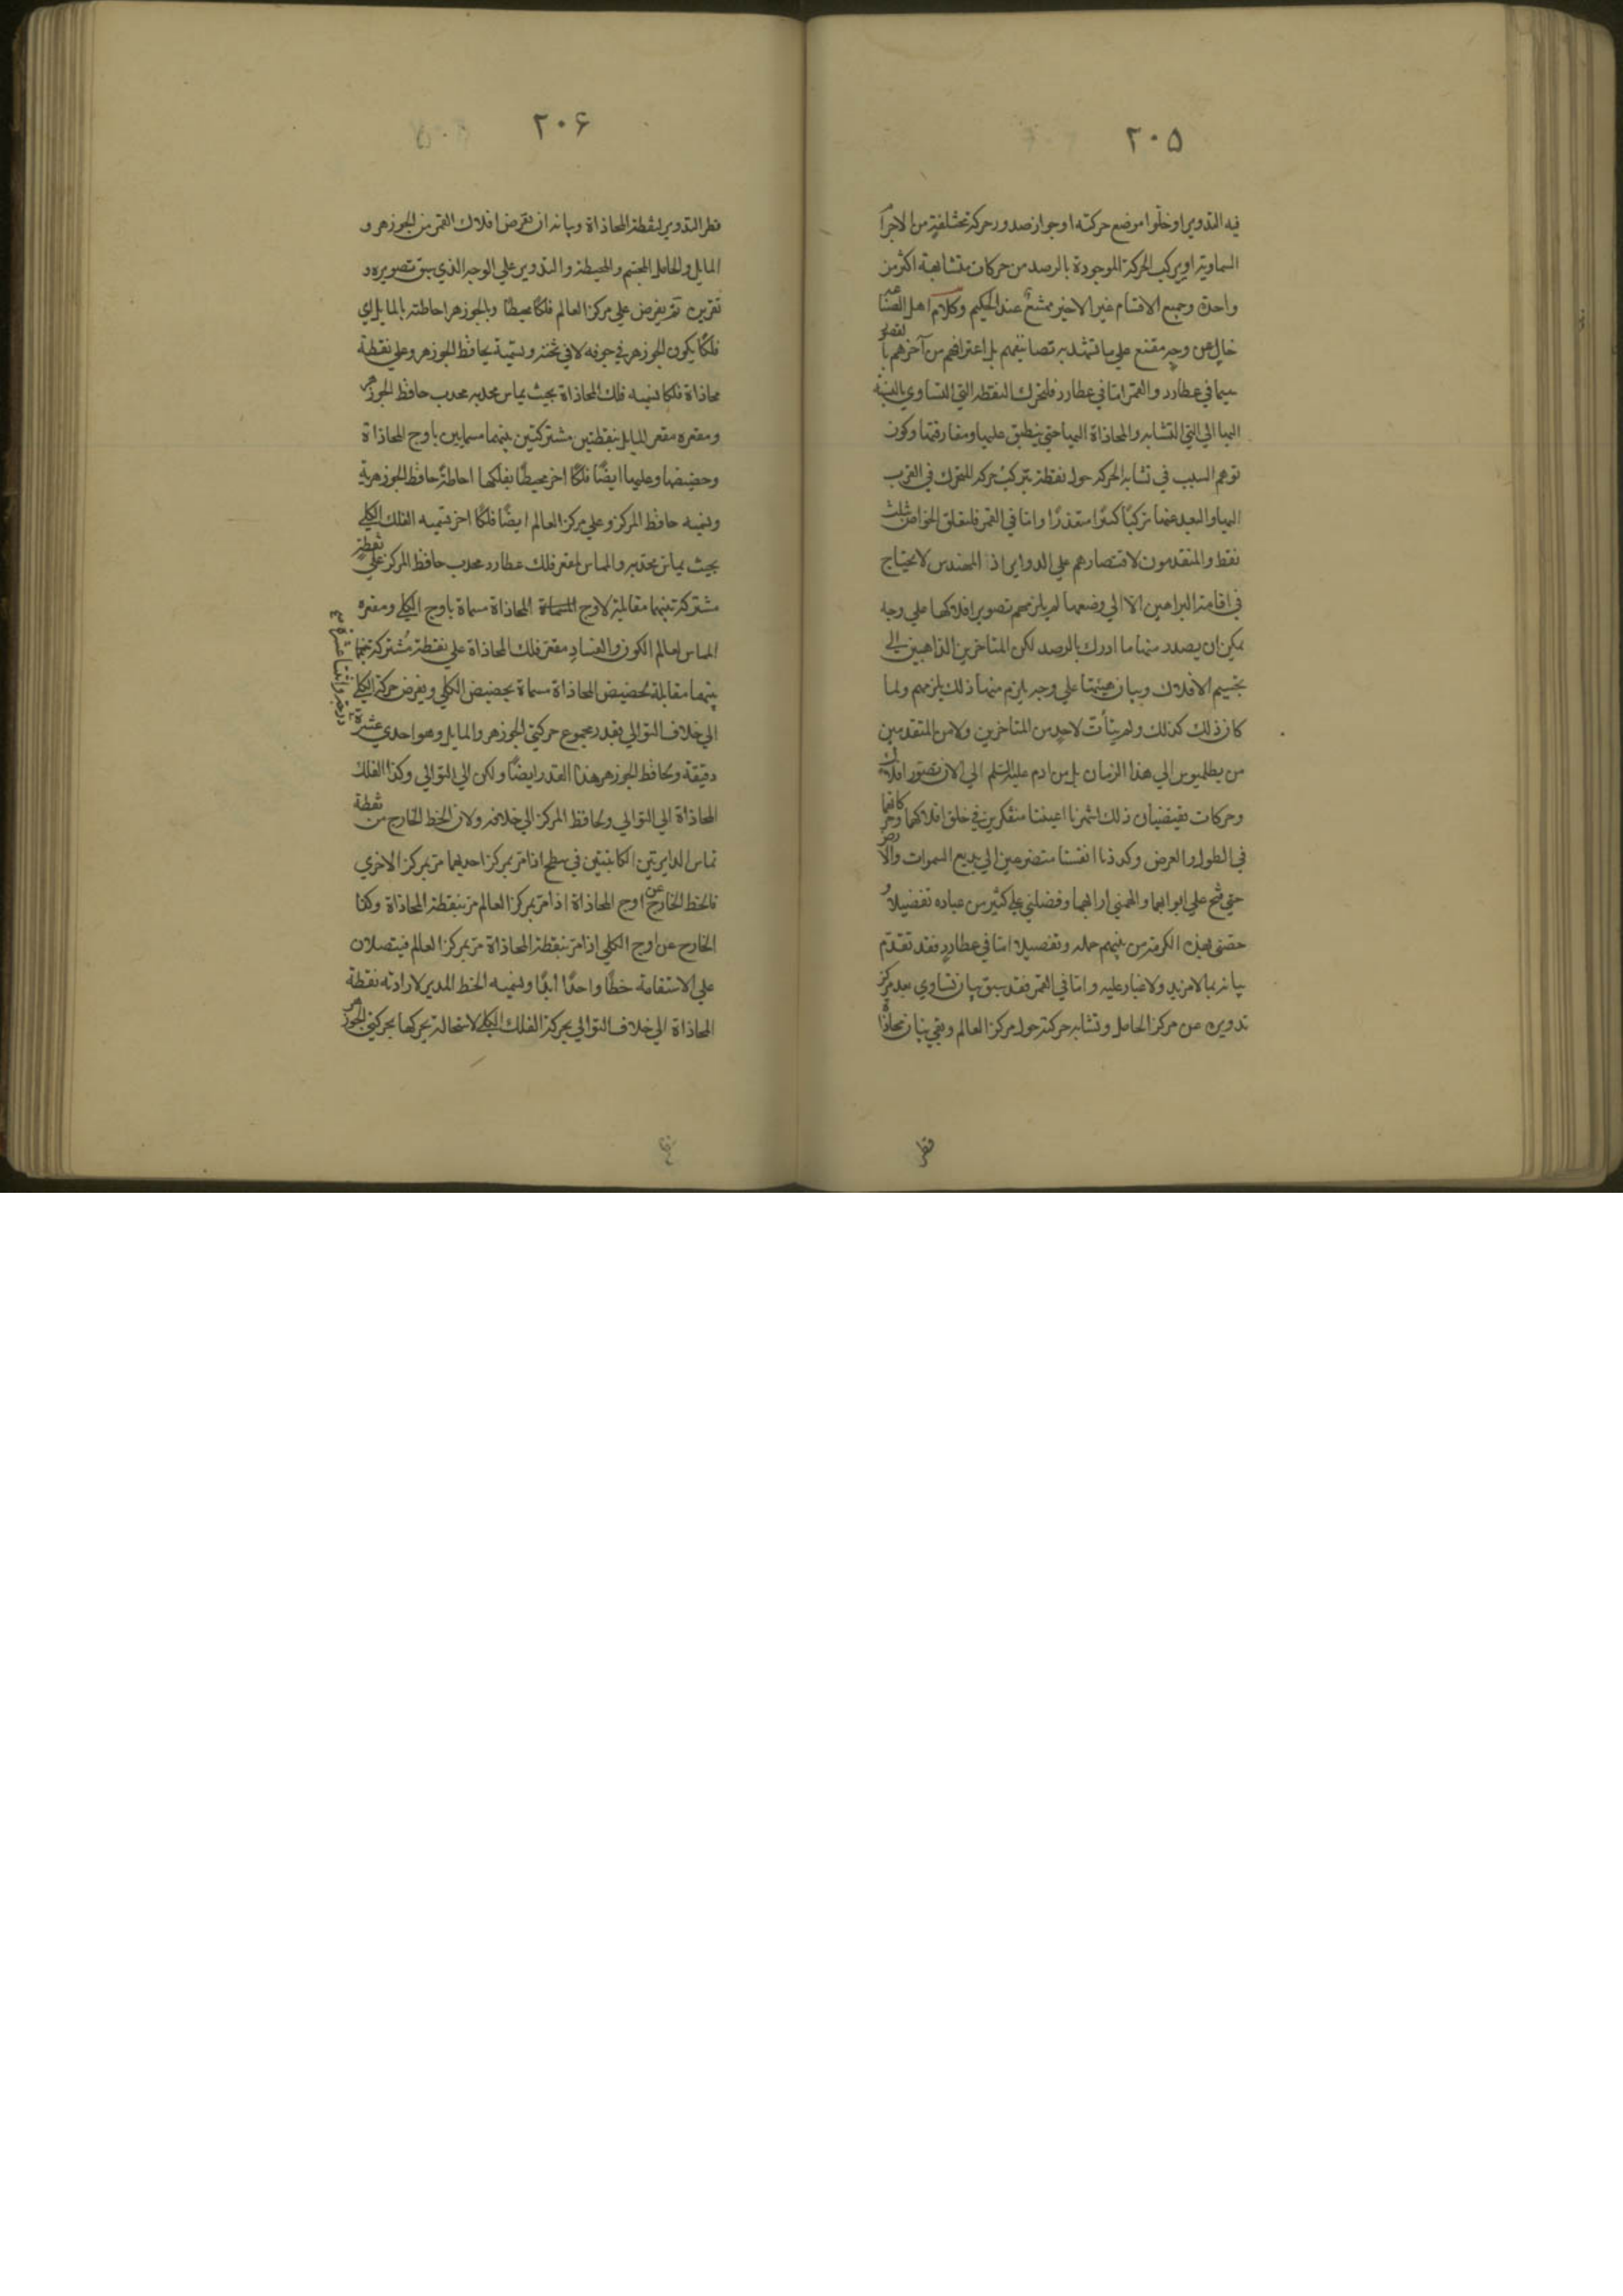 ٢٠۵
فيه التدوير او خلّوا موضع حركته او جواز صدور حركة مختلفة من الاجرا
السماوية او يركب الحركة الموجودة بالرصد من حركات متشابهة اكثر من
واحدة وجميع الاقسام غير الاخير ممتنع عند الحكيم وكلام اهل الصناعة
خال عن وجه مقنع على ما تشهد به تصانيفهم بل اعترافهم من آخرهم بالقصور
سيما في عطارد والقمر اما في عطارد فلتحرك النقطة التي التساوي بالنسبة
اليها الى التي التشابه والمحاذاة اليها حتى ينطبق عليها ومفارقتها وكون
توهم السبب في تشابه الحركة حول نقطة بتركب حركة المتحرك في القرب
اليها والبعد عنها تركيبًا كثيرًا متعذرًا واما في القمر فلتعلق الخواص بثلث
نقط والمتقدمون لاقتصارهم على الدواير اذ المهندس لا يحتاج
في اقامة البراهين الا الى وضعها لم يلزمهم تصوير افلاكها على وجه
يمكن ان يصدر منها ما ادرك بالرصد لكن المتاخرين الذاهبين الى
تجسيم الافلاك وبيان هيئتها على وجه يلزم منها ذلك يلزمهم ولما
كان ذلك كذلك ولم يتأت لاحد من المتاخرين ولا من المتقدمين
من بطلميوس الى هذا الزمان بل من ادم عليه السلم الى الان تصور افلاك
وحركات تقتضيان ذلك اسهرنا اعيننا متفكرين في خلق افلاكهما وحركاتهما
في الطول والعرض وكددنا انفسنا متضرعين الى بديع السموات والارض
حتى فتح علي ابوابهما والهمني ارابهما وفضلني على كثير من عباده تفضيلا و
خصني بهذه الكرمة من بينهم جملة وتفصيلا اما في عطارد فقد تقدم
بيانه بما لا مزيد ولا غبار عليه واما في القمر فقد سبق بيان تساوي بعد مركز
تدويره عن مركز الحامل وتشابه حركته حول مركز العالم وبقي بيان محاذاة
قطر
٢٠۶
قطر التدوير لنقطة المحاذاة وبيانه ان نفرض افلاك القمر من الجوزهر و
المايل والحامل المجسم والمحيطة والتدوير على الوجه الذي سبق تصويره و
تقريره ثم نفرض على مركز العالم فلكًا محيطًا وبالجوزهر احاطته بالمايل اي
فلكًا يكون الجوزهر في جوفه لا في ثخنه ونسميه بحافظ الجوزهر وعلى نقطة
محاذاة فلكا نسميه فلك المحاذاة بحيث يماس محدبه محدب حافظ الجوزهر
ومقعره مقعر المايل بنقطتين مشتركتين بينهما مسمايين باوج المحاذاة
وحضيضها وعليها ايضًا فلكًا اخر محيطًا بفلكها احاطة حافظ الجوزهر به
ونسميه حافظ المركز وعلى مركز العالم ايضًا فلكًا اخر نسميه الفلك الكلي
بحيث يماس محدبه والمماس لمقعر فلك عطارد محدب حافظ المركز على نقطة
مشتركة بينهما مقابلة لاوج المحاذاة مسماة باوج الكلي ومقعره
المماس لعالم الكون والفساد مقعر فلك المحاذاة على نقطة مشتركة بينهما
بينهما مقابلة لحضيض المحاذاة مسماة بحضيض الكلي ونفرض حركة الكلي
الى خلاف التوالي بقدر مجموع حركتي الجوزهر والمايل وهو احدى عشرة
درجة واثنتا عشرة
دقيقة ولحافظ الجوزهر هذا القدر ايضًا ولكن الى التوالي وكذا الفلك
المحاذاة الى التوالي ولحافظ المركز الى خلافه ولان الخط الخارج من نقطة
تماس الدايرتين الكاينتين في سطح اذا مر بمركز احديهما مر بمركز الاخرى
فالخط الخارج عن اوج المحاذاة اذا مر بمركز العالم مر بنقطة المحاذاة وكذا
الخارج عن اوج الكلي اذا مر بنقطة المحاذاة مر بمركز العالم فيتصلان
على الاستقامة خطًا واحدًا ابدًا ونسميه الخط المدير لادارته نقطة
المحاذاة الى خلاف التوالي بحركة الفلك الكلي لاستحالة تحركها بحركتي الجوزهر